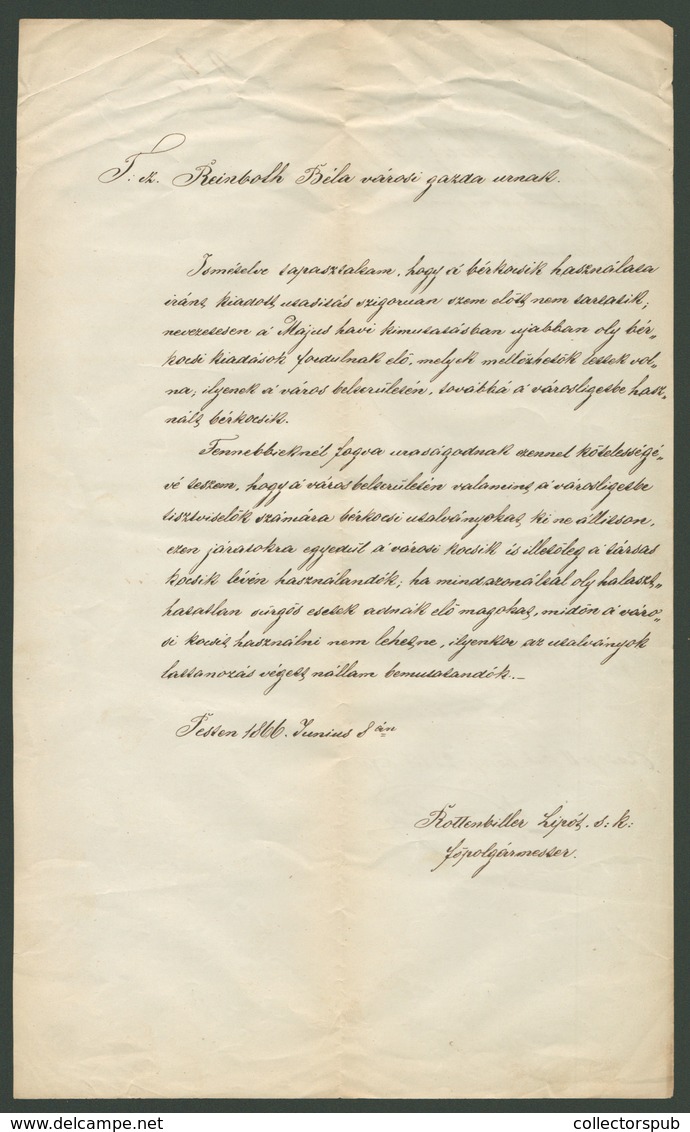 T: cz. Reinboth Béla városi gazda urnak.
Ismételve tapasztaltam, hogy a bérkocsik használata
iránt kiadott utasitás szigoruan szem előtt nem tartatik;
nevezetesen a Május havi kimutatásban ujabban oly bér„
kocsi kiadások fordulnak elő, melyek mellőzhetők lettek vol„
na; ilyenek a város belterületén, továbbá a városligetbe hasz„
nált bérkocsik.
Fennebbieknél fogva uraságodnak ezennel kötelességé„
vé teszem, hogy a város belterületén valamint a városligetbe
tisztviselők számára bérkocsi utalványokat ki ne állitson,
ezen járatokra egyedül a városi kocsik is illetőleg a társas
kocsik lévén használandók; ha mindazonáltal oly halaszt„
hatatlan sürgős esetek adnák elő magokat, midőn a váro„
si kocsit használni nem lehetne, ilyenkor az utalványok
láttamozás végett nállam bemutatandók. —
Pesten 1866. Junius 8 án
Rottenbiller Lipót. s: k:
főpolgármester.
collectorspub